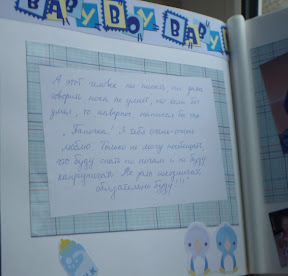 BABY BOY BABY
А этот человек ни писать, ни даже
говорить пока не умеет, но если бы
умел, то наверное, написал бы так
"Папочка! Я тебя очень-очень
люблю. Только не могу пообещать,
что буду спать по ночам и не буду
капризничать. Но радо
обязательно буду!!!"